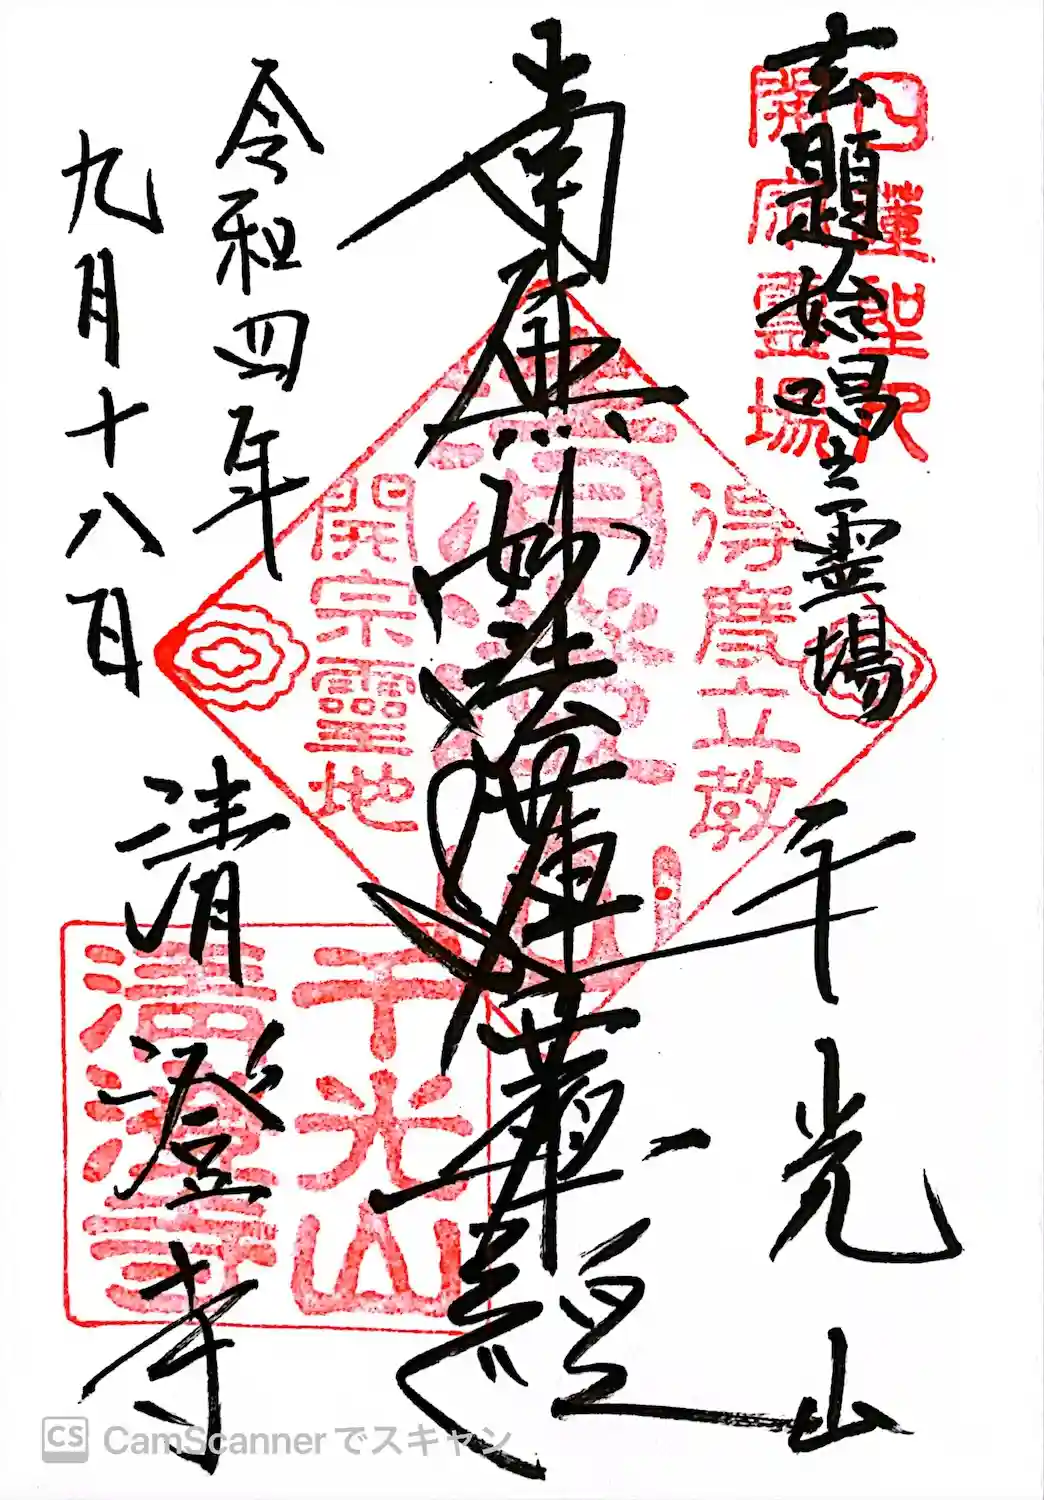 玄題始唱之霊場
千光山
南無妙法蓮華経
令和四年
九月十八日
清澄寺
開宗霊場
得度立教
開宗靈地
清澄山
千光山
清澄寺
CS CamScanner でスキャン